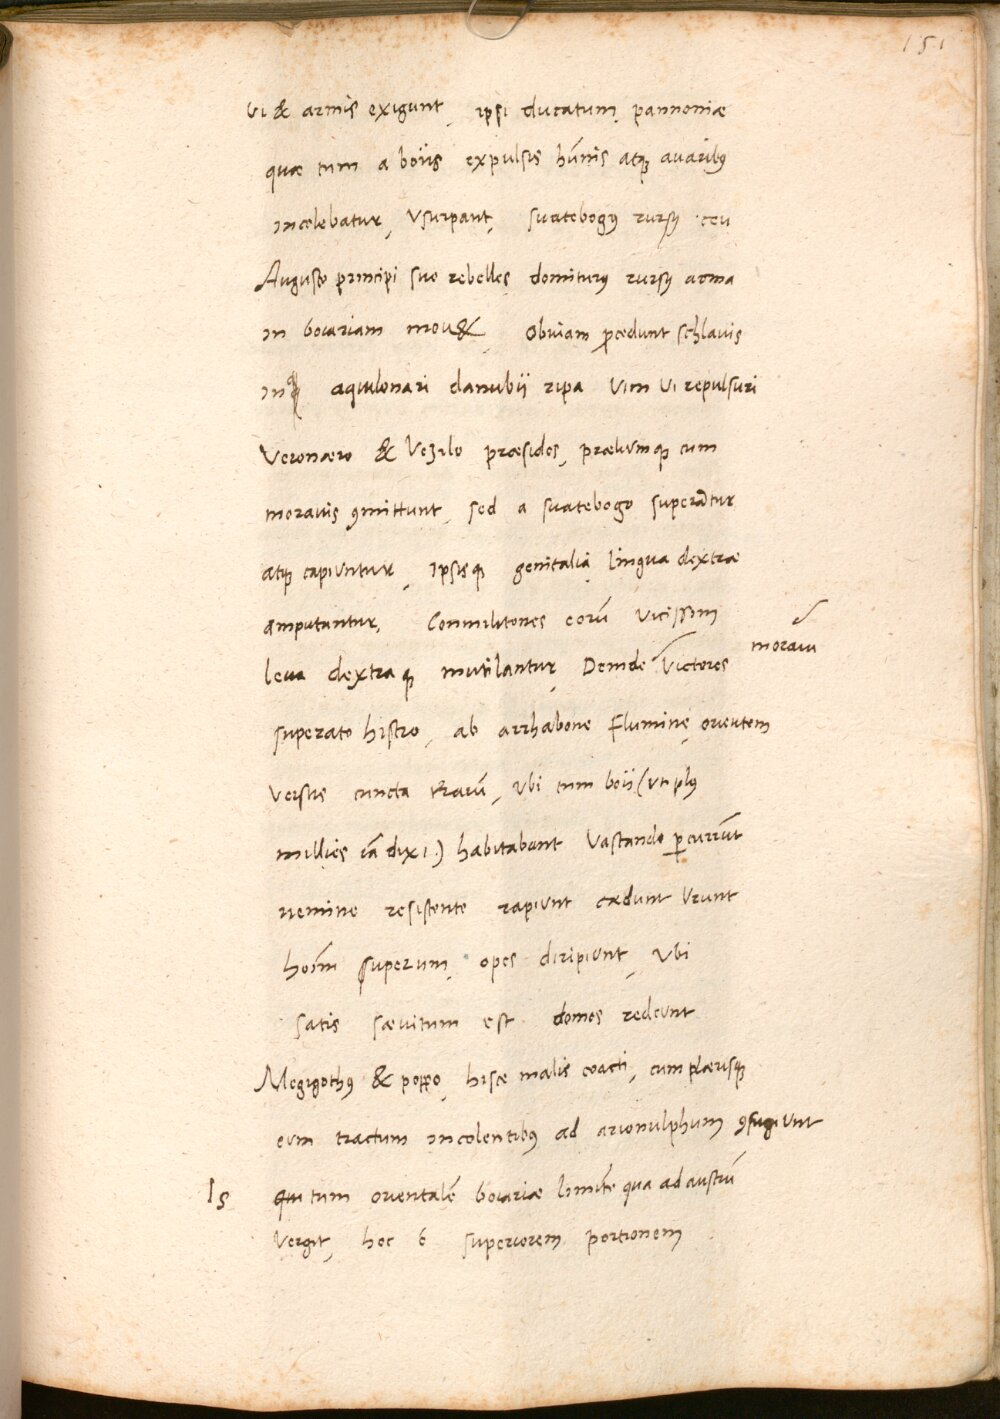 151
vi & armis exigunt, ipsi ducatum pannoniæ
quæ tum a boiis expulsis hūnis atqȝ avaribꝰ
incolebatur, Usurpant, suatebogꝰ rursꝰ ceu
Augusto principi suo rebelles domiturꝰ rursꝰ arma
in boiariam mou& Obuiam ꝓcedunt schlauis
in aquilonari danubii ripa vim vi repulsuri
Veronæro & Vezilo præsides, præliumqȝ cum
morauis ꝯmittunt, sed a suatebogo superātur
atqȝ capiuntur, Ipsisqȝ genitalia lingua dextræ
amputantur, Conmilitones eorū vicissim
leua dextraqȝ mutilantur, Deinde Victores moraui
superato histro, ab arrhabone flumine, orientem
versus cuncta trarū, Vbi tum boii (vti plꝰ
millies iā dixi) habitabant Vastando ꝑcurrūt
nemine resistente rapiunt cædunt Urunt
hoīm superum, opes diripiunt, Vbi
satis sæuitum est domos redeunt
Megigothꝰ & poppo, hisce malis coacti, cum plærisqȝ
eum tractum incolentibꝰ ad arionulphum ꝯfugiunt
Is qui tum orientalē boiariæ limitē qua ad austrū
Vergit, hoc ē superiorem portionem